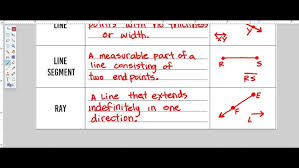 LINE
points with no thickness
or width.
XY
Y
LINE
SEGMENT
A measurable part of a
line consisting of
two endpoints.
R S
RS
RAY
A line that extends
indefinitely in one
direction.
F E